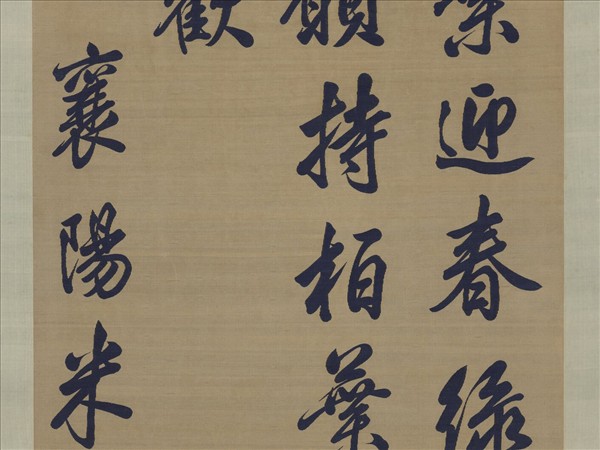 迎春綠
願持柏葉
歡
襄陽米